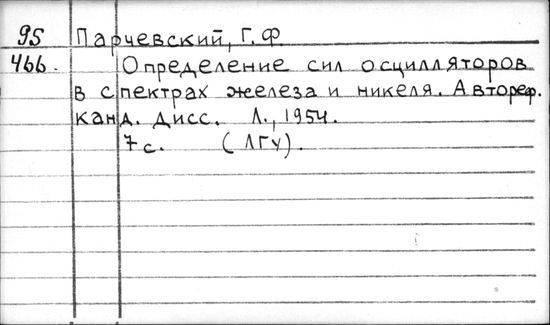 95 Парчевский, Г.Ф.
466. Определение сил осцилляторов
в спектрах железа и никеля. Автореф.
канд. дисс. Л., 1954.
7 с. (ЛГУ).